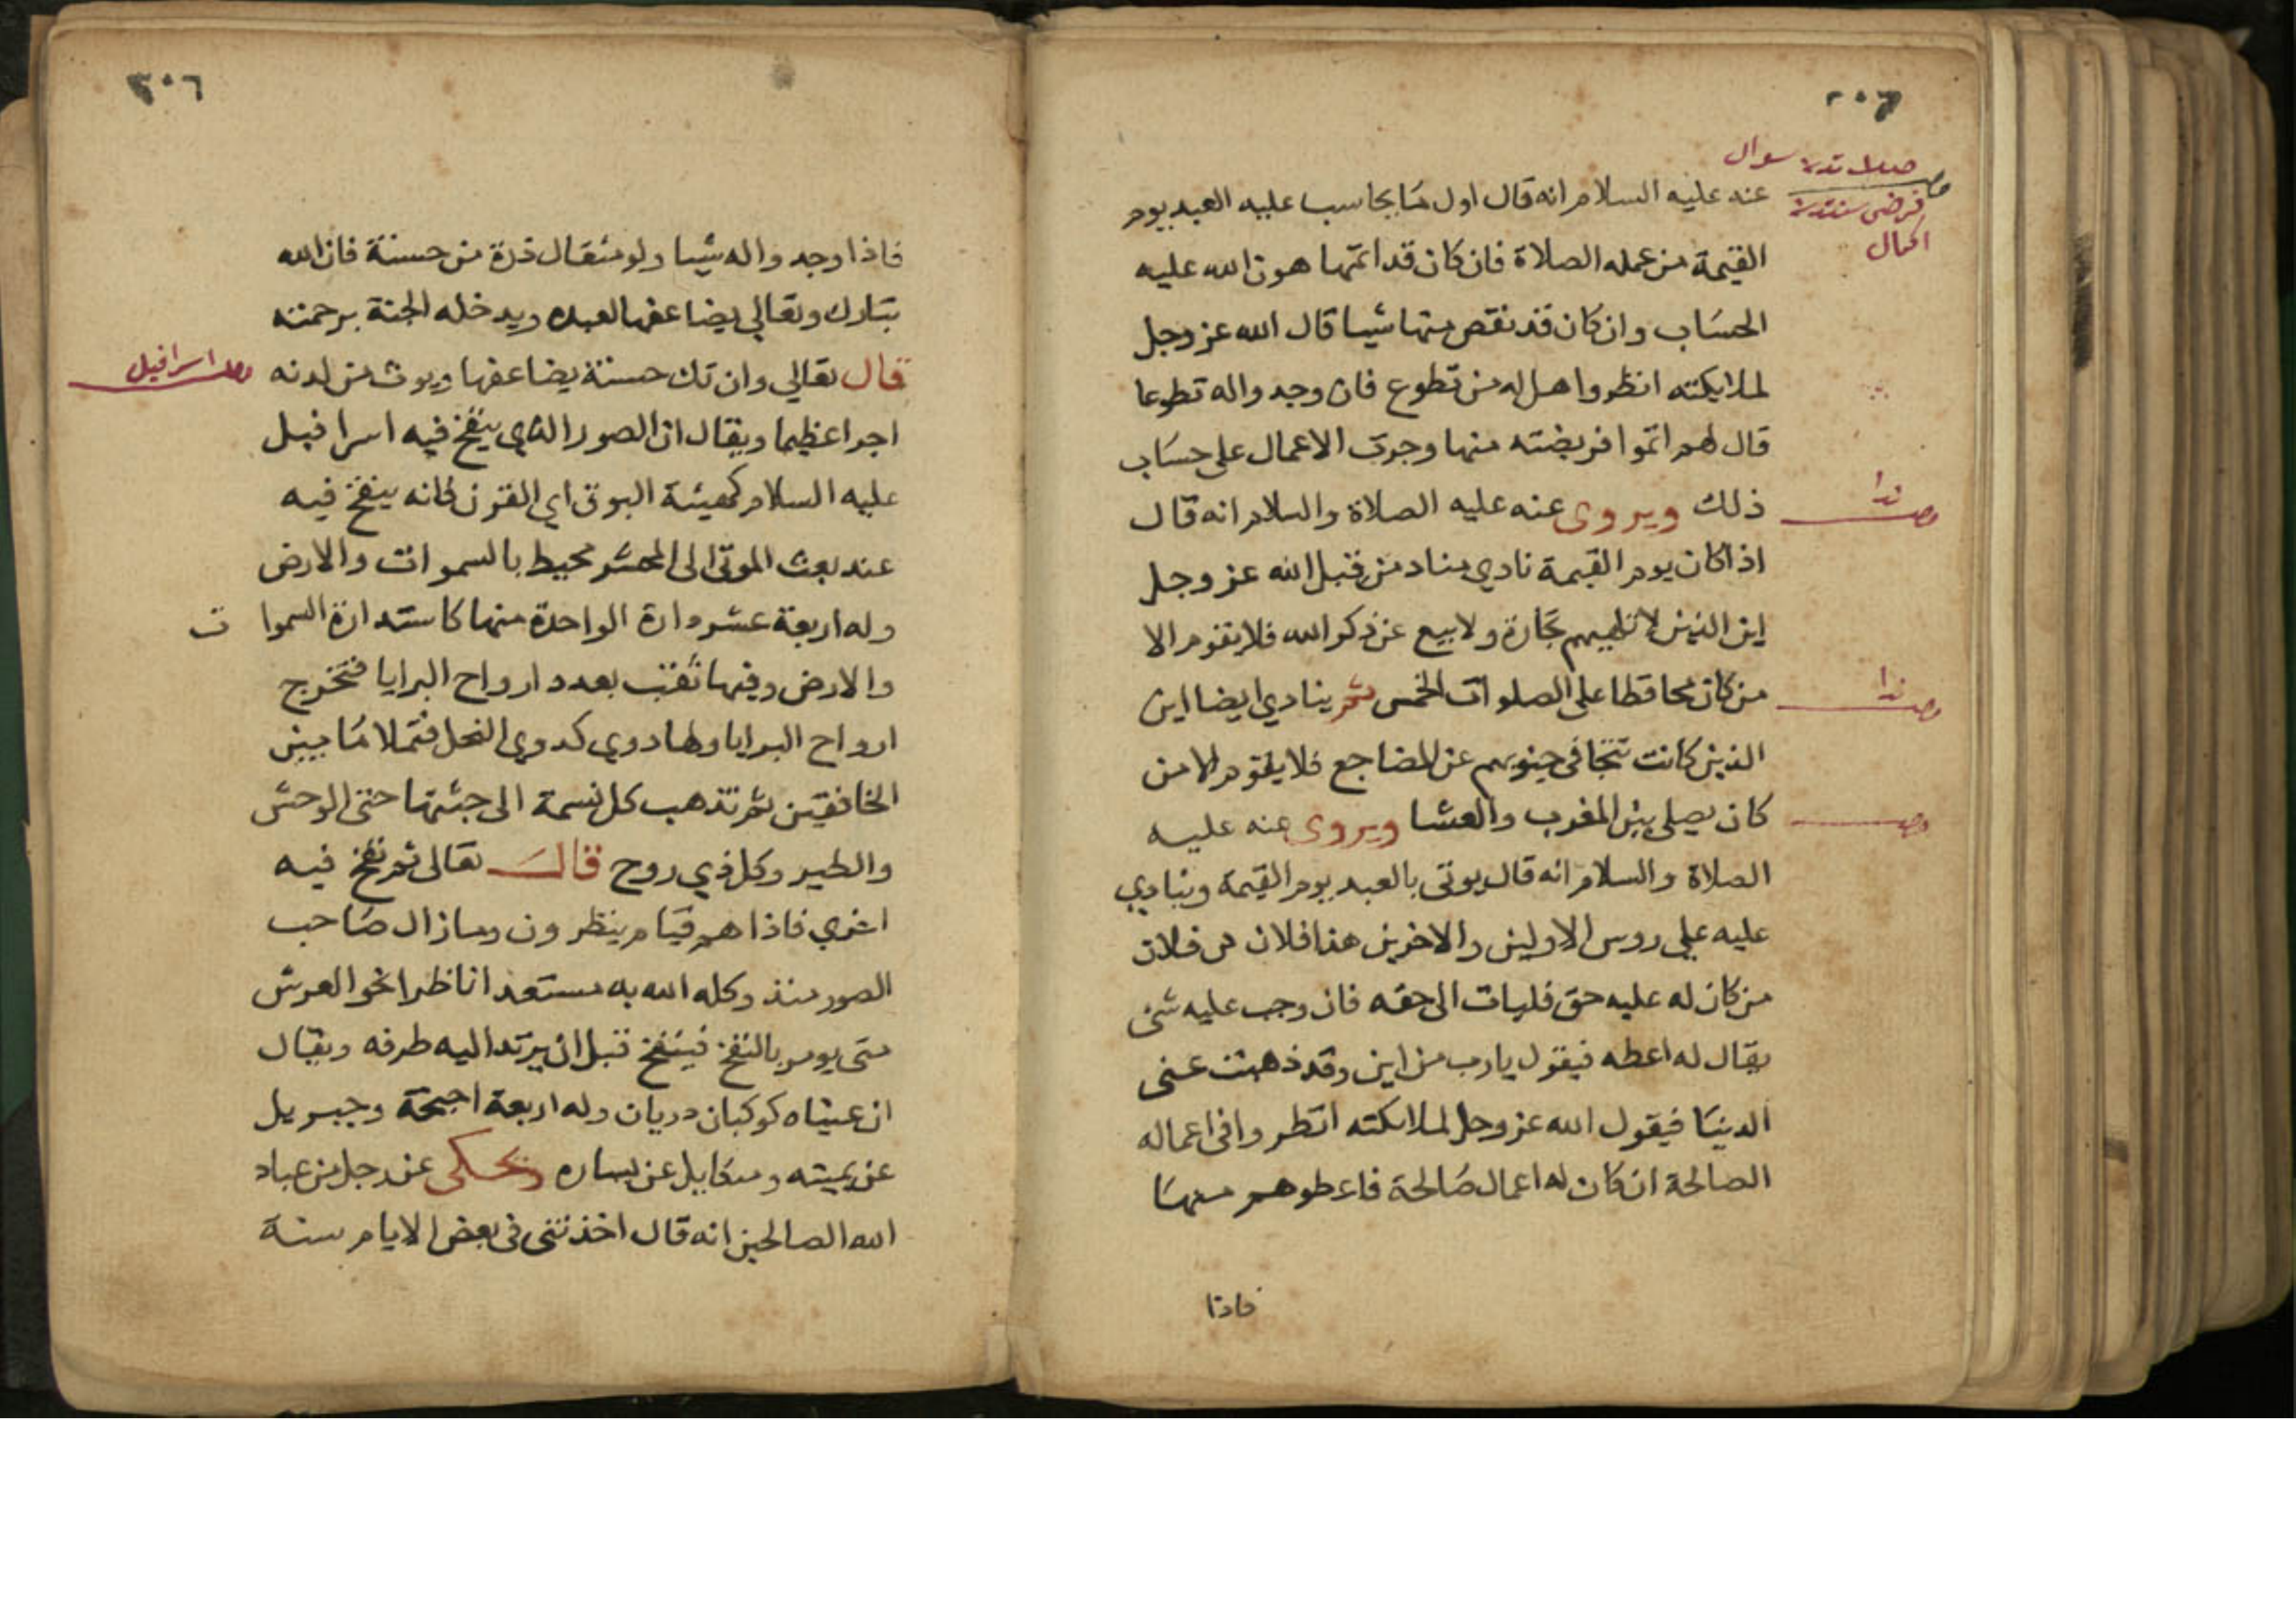 عنه عليه السلام انه قال اول ما يحاسب عليه العبد يوم
القيمة من عمله الصلاة فان كان قد اتمها هون الله عليه
الحساب وان كان قد نقص منها شيا قال الله عز وجل
لملايكته انظروا هل له من تطوع فان وجدوا له تطوعا
قال لهم اتموا فريضته منها وجرت الاعمال على حساب
ذلك ويروى عنه عليه الصلاة والسلام انه قال
اذا كان يوم القيمة نادي مناد من قبل الله عز وجل
اين الذين لا تلهيهم تجارة ولا بيع عن ذكر الله فلا يقوم الا
من كان محافظا على الصلوات الخمس ثم ينادي ايضا اين
الذين كانت تتجافى جنوبهم عن المضاجع فلا يقوم الا من
كان يصلي بين المغرب والعشا ويروى عنه عليه
الصلاة والسلام انه قال يوتى بالعبد يوم القيمة وينادي
عليه علي روس الاولين والاخرين هذا فلان بن فلان
من كان له عليه حق فليات الى حقه فان وجب عليه شي
يقال له اعطه فيقول يا رب من اين وقد ذهبت عني
الدنيا فيقول الله عز وجل لملايكته انظروا في اعماله
الصالحة ان كان له اعمال صالحة فاعطوهم منها
فاذا
سوال
اكمال
ندا
ندا
٣٠٦
فاذا وجدوا له شيا ولو مثقال ذرة من حسنة فان الله
تبارك وتعالي يضاعفها لعبده ويدخله الجنة برحمته
قال تعالي وان تك حسنة يضاعفها ويوت من لدنه
اجرا عظيما ويقال ان الصور الذي ينفخ فيه اسرافيل
عليه السلام كهيئة البوق اي القرن فانه ينفخ فيه
عند بعث الموتى الى المحشر محيط بالسموات والارض
وله اربعة عشر دارة الواحدة منها كاستدارة السموات
والارض وفيها ثقب بعدد ارواح البرايا فتخرج
ارواح البرايا ولها دوي كدوي النحل فتملا ما بين
الخافقين ثم تذهب كل نسمة الى جثتها حتى الوحش
والطير وكل ذي روح قال تعالى ثم نفخ فيه
اخري فاذا هم قيام ينظرون وما زال صاحب
الصور منذ وكله الله به مستعدا ناظرا نحو العرش
متى يومر بالنفخ فينفخ قبل ان يرتد اليه طرفه ويقال
ان عيناه كوكبان دريان وله اربعة اجنحة وجبريل
عن يمينه وميكاييل عن يساره ويحكى عن رجل من عباد
الله الصالحين انه قال اخذتني في بعض الايام سنة
اسرافيل